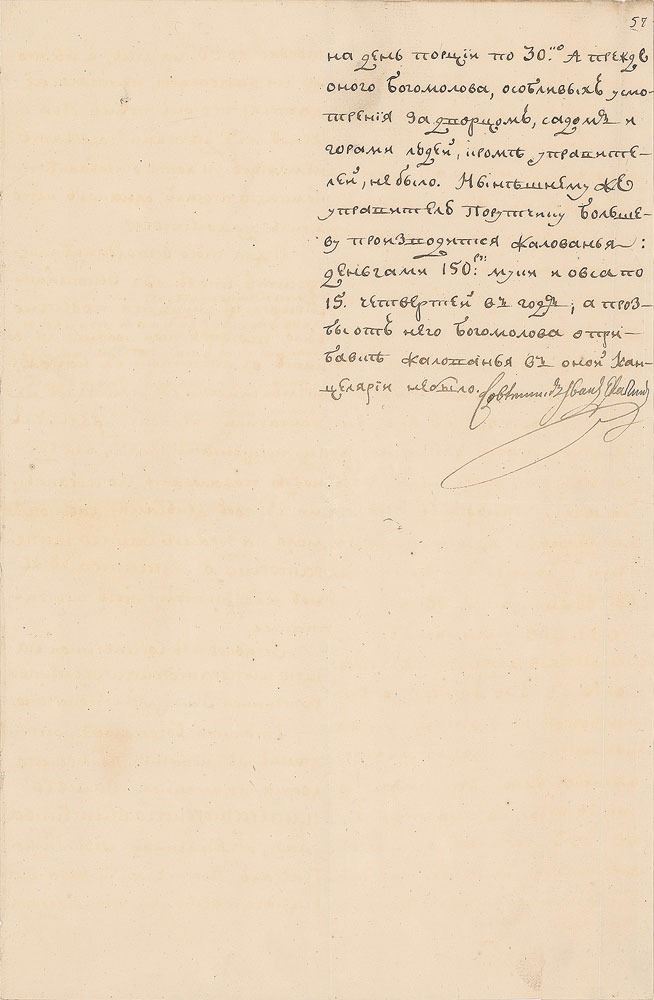 57
на день порціи по 30:ко А прежде
оного Богомолова, особливыхъ усмо-
трения за дворцомъ, садомъ и
горами людей, кромѣ управите-
лей, не было. Нынѣшнему же
управителю Порутчику Большe-
ву производится жалованья:
деньгами 150:ру: муки и овса по
15. четвертей въ годъ; а проз-
бы отъ него Богомолова о при-
бавкѣ жалованья въ оной Кан-
целяріи небыло. Совѣтникъ Иванъ